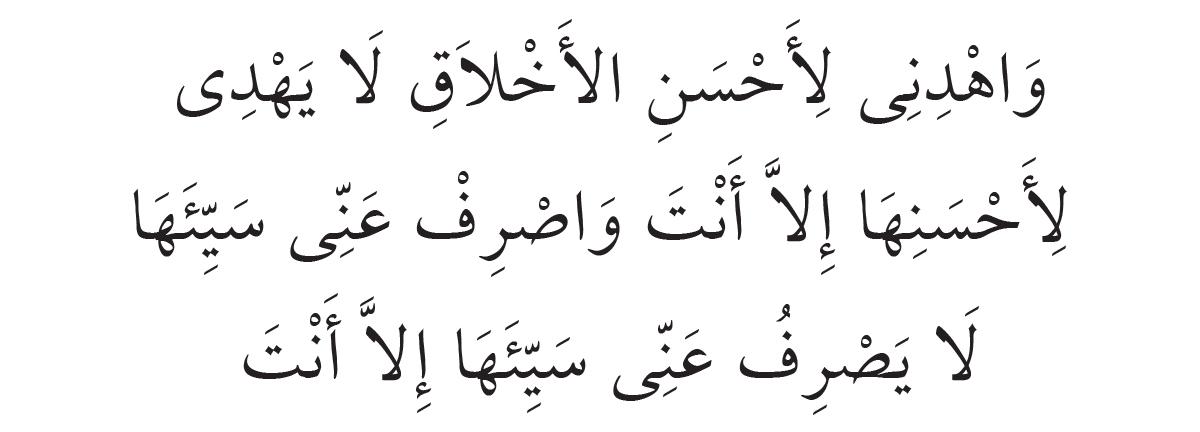 وَاهْدِنِى لِأَحْسَنِ الأَخْلاَقِ لَا يَهْدِى
لِأَحْسَنِهَا إِلاَّ أَنْتَ وَاصْرِفْ عَنِّى سَيِّئَهَا
لَا يَصْرِفُ عَنِّى سَيِّئَهَا إِلاَّ أَنْتَ